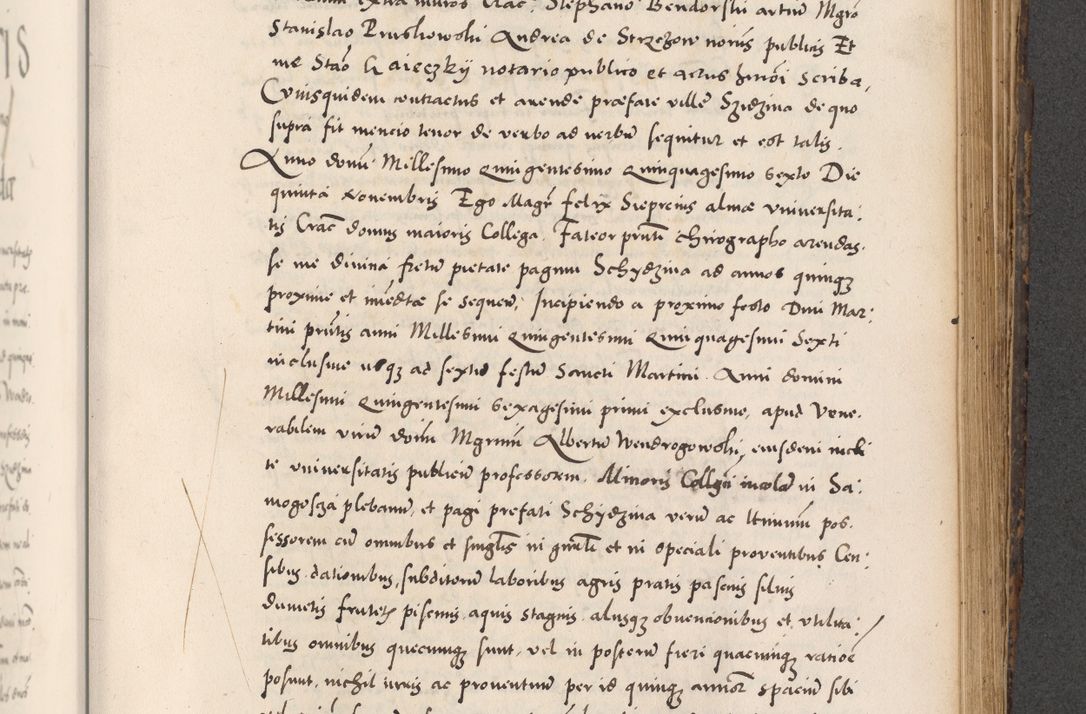 extra muros Crac: Stephano Bendorski artiu Mgro
Stanislao Pruskowski Andrea de Strzezow noriis publicis Et
me Stao Gaieczkij notario publico et actus hmoi scriba,
Cuiusquidem contractus et arende præfate ville Szidzina de quo
supra fit mencio tenor de verbo ad verbu sequitur et est talis.
Anno domi: Millesimo Quingentesimo Quinquagesimo sexto Die
quinta Novembris Ego Magr felix Sieprcius almæ universita:
tis Crac domus maioris Collega. Fateor prnti chirographo arendas.
se me divina fretu pietate pagum Schydzina ad annos quinq
proxime et imedtæ se sequen, Incipiendo a proximo festo Divi Mar:
tini prntis anni Millesimi Quingentesimi Quinquagesimi Sexti
inclusive usq ad sextu festu Sancti Martini. Anni domini
Millesimi Quingentesimi sexagesimi primi exclusive, apud Vene.
rabilem viru domi Mgrum Albertu Wendrogowski, eiusdem incli
te universitatis publicu professorem. Minoris Collegii incola in Sa:
mogoscza plebanu, et pagi prefati Schydzina veru ac ltimum pos.
sessorem cu omnibus et singlis in gnali et in speciali proventibus Cen:
sibus dationibus, subditoru laboribus agris pratis pascuis silvis
dumetis frutetz piscinis aquis stagnis aliisq obvencionibus et utilita:
tibus omnibus quecumq sunt, vel in posteru fieri quacumq ratioe
possunt, nichil iuris ac proventuu per id quinq annor spaciu sibi